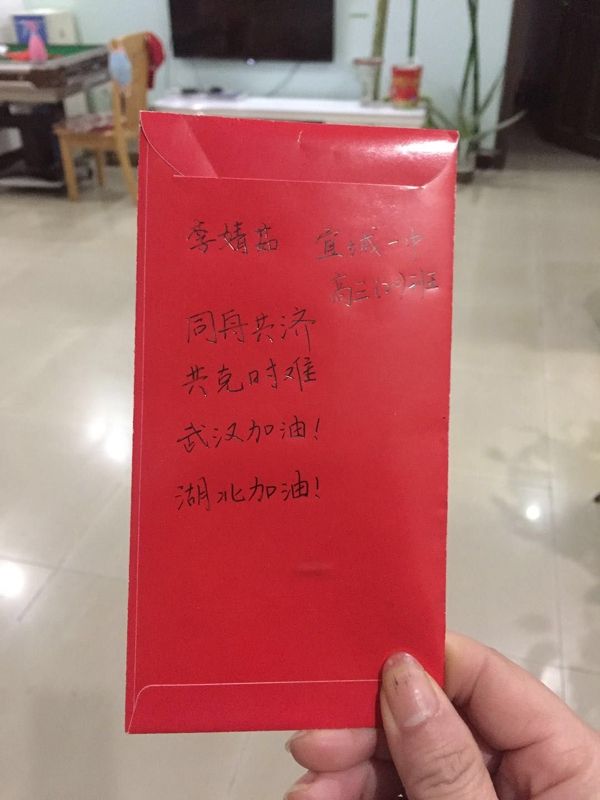 李婧茹 宜城一中
高二(20)班
同舟共济
共克时难
武汉加油!
湖北加油!